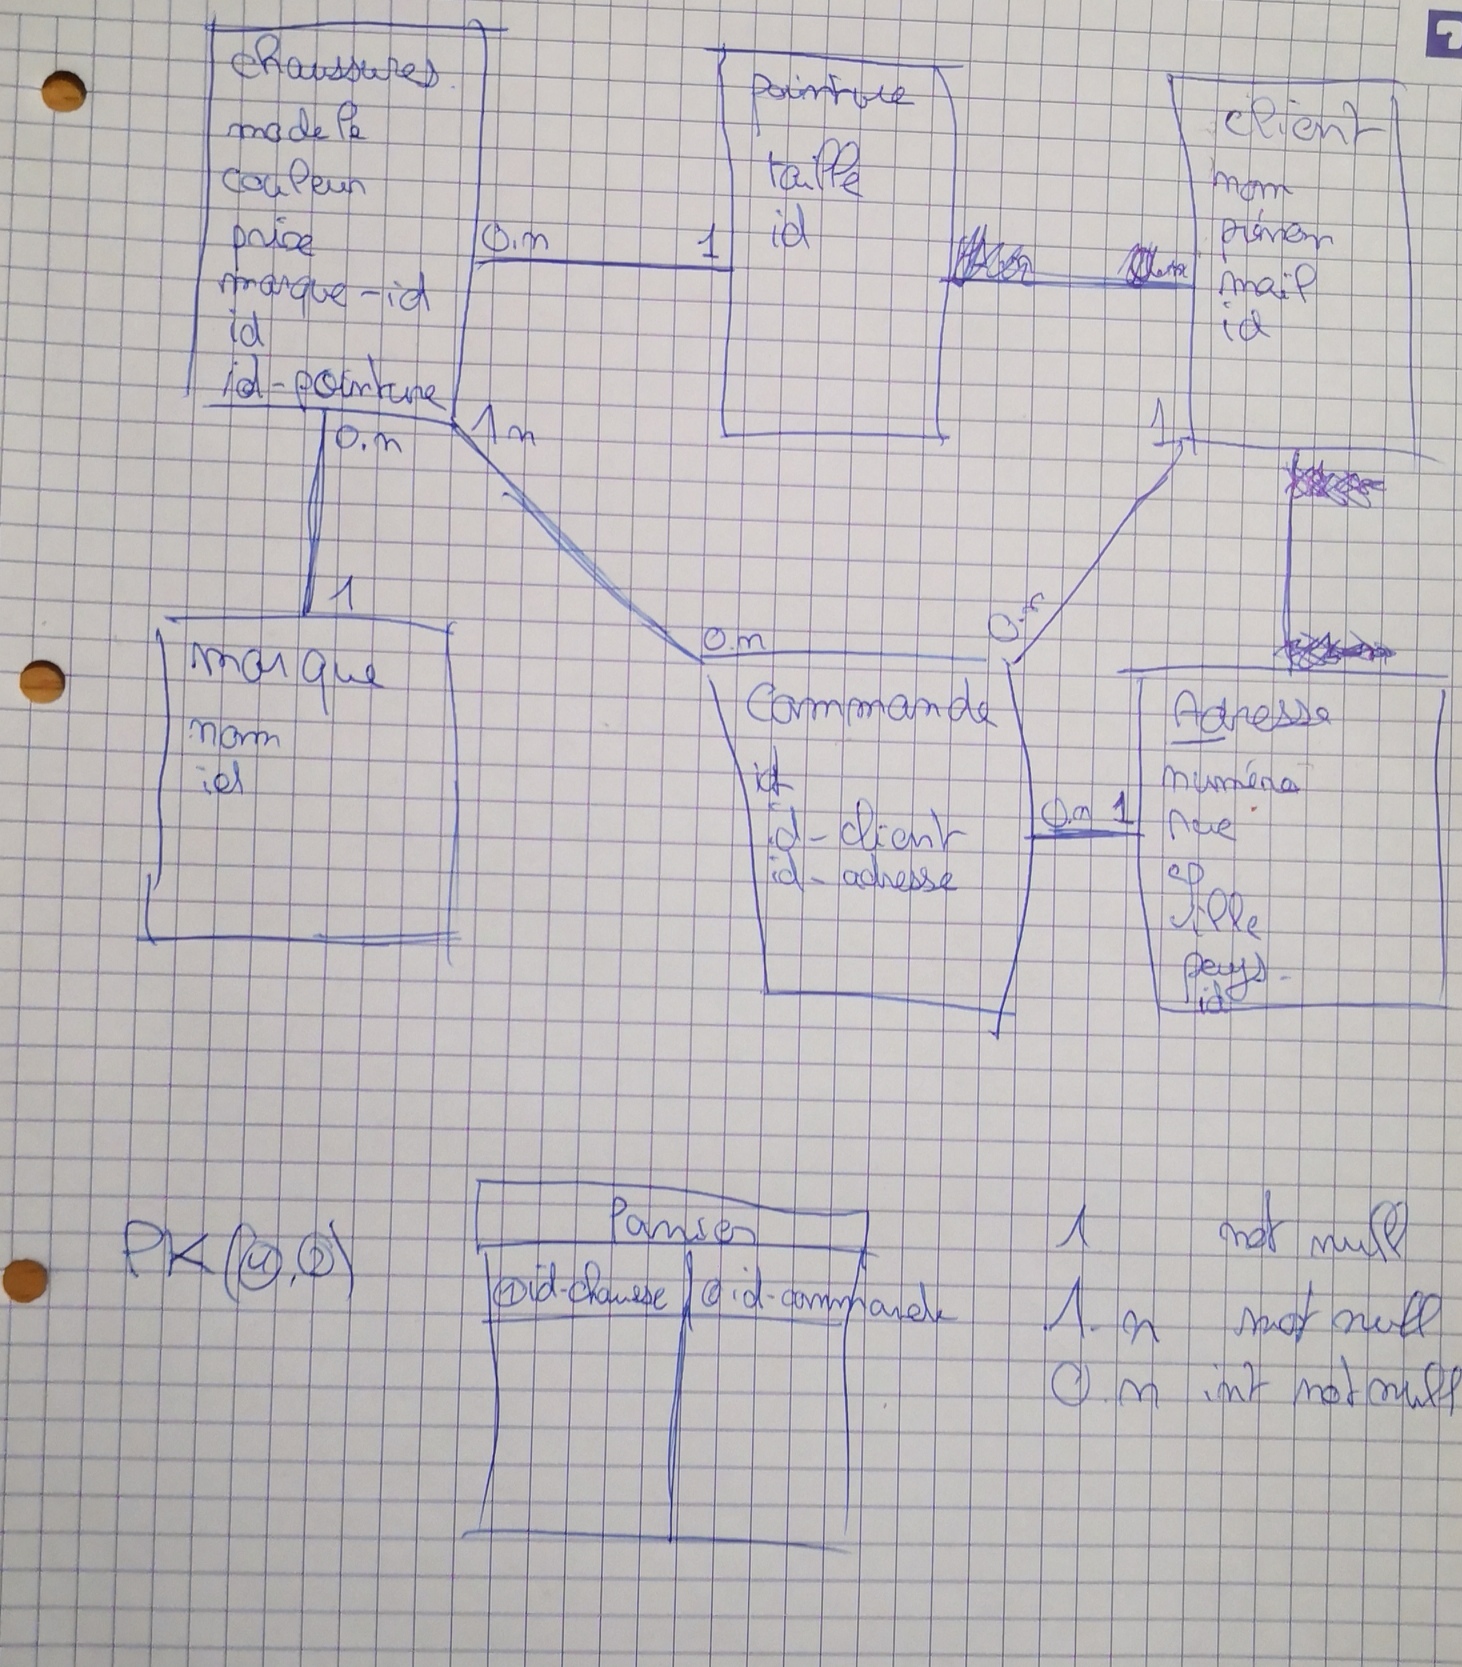 chaussures
modele
couleur
prix
marque-id
id
id-pointure
0.n
1
pointure
taille
id
client
nom
prénom
mail
id
0.n
1
1.n
0.n
1
0.n
marque
nom
id
Commande
id
id-client
id-adresse
0.n 1
Adresse
numéro
rue
cp
ville
pays
id
PK(
Panier
id-chausse
id-commande
1 not null
1.n not null
0.n int not null